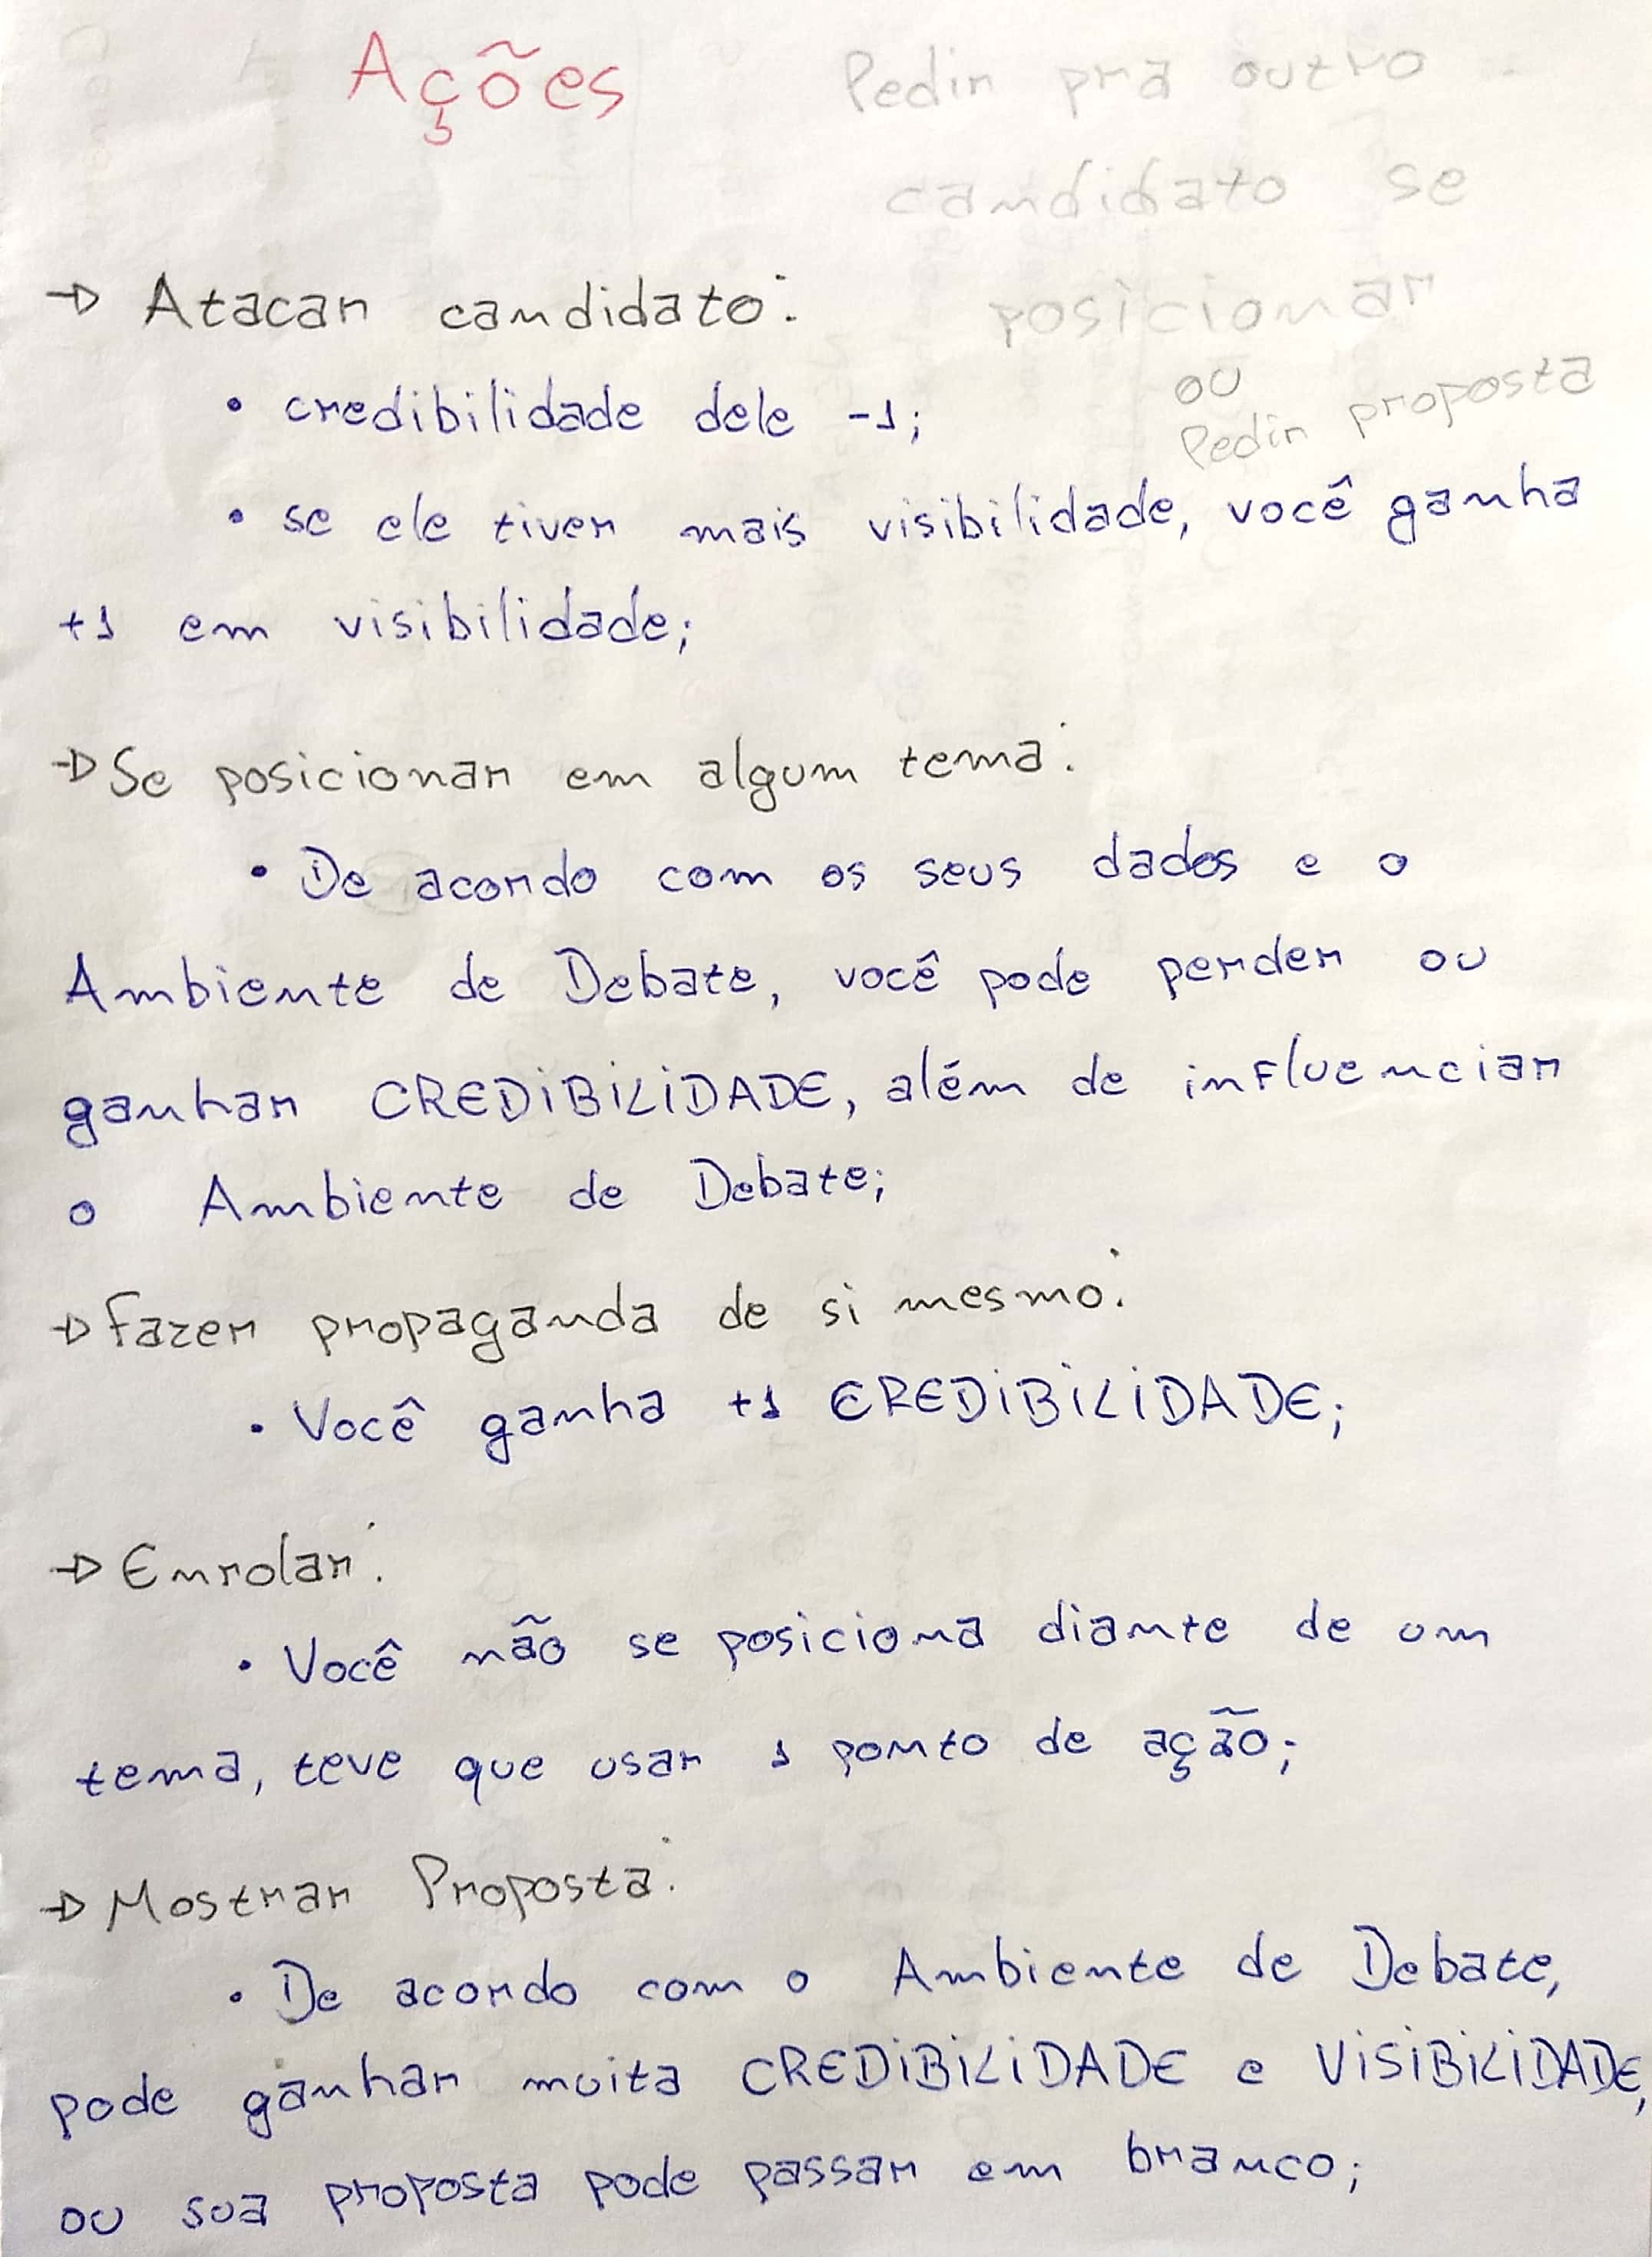 Ações
Pedir pra outro
candidato se
posicionar
ou
Pedir proposta
→ Atacar candidato:
• credibilidade dele -1;
• se ele tiver mais visibilidade, você ganha
+1 em visibilidade;
→ Se posicionar em algum tema:
• De acordo com os seus dados e o
Ambiente de Debate, você pode perder ou
ganhar CREDIBILIDADE, além de influenciar
o Ambiente de Debate;
→ Fazer propaganda de si mesmo:
• Você ganha +1 CREDIBILIDADE;
→ Enrolar:
• Você não se posiciona diante de um
tema, teve que usar 1 ponto de ação;
→ Mostrar Proposta:
• De acordo com o Ambiente de Debate,
pode ganhar muita CREDIBILIDADE e VISIBILIDADE,
ou sua proposta pode passar em branco;